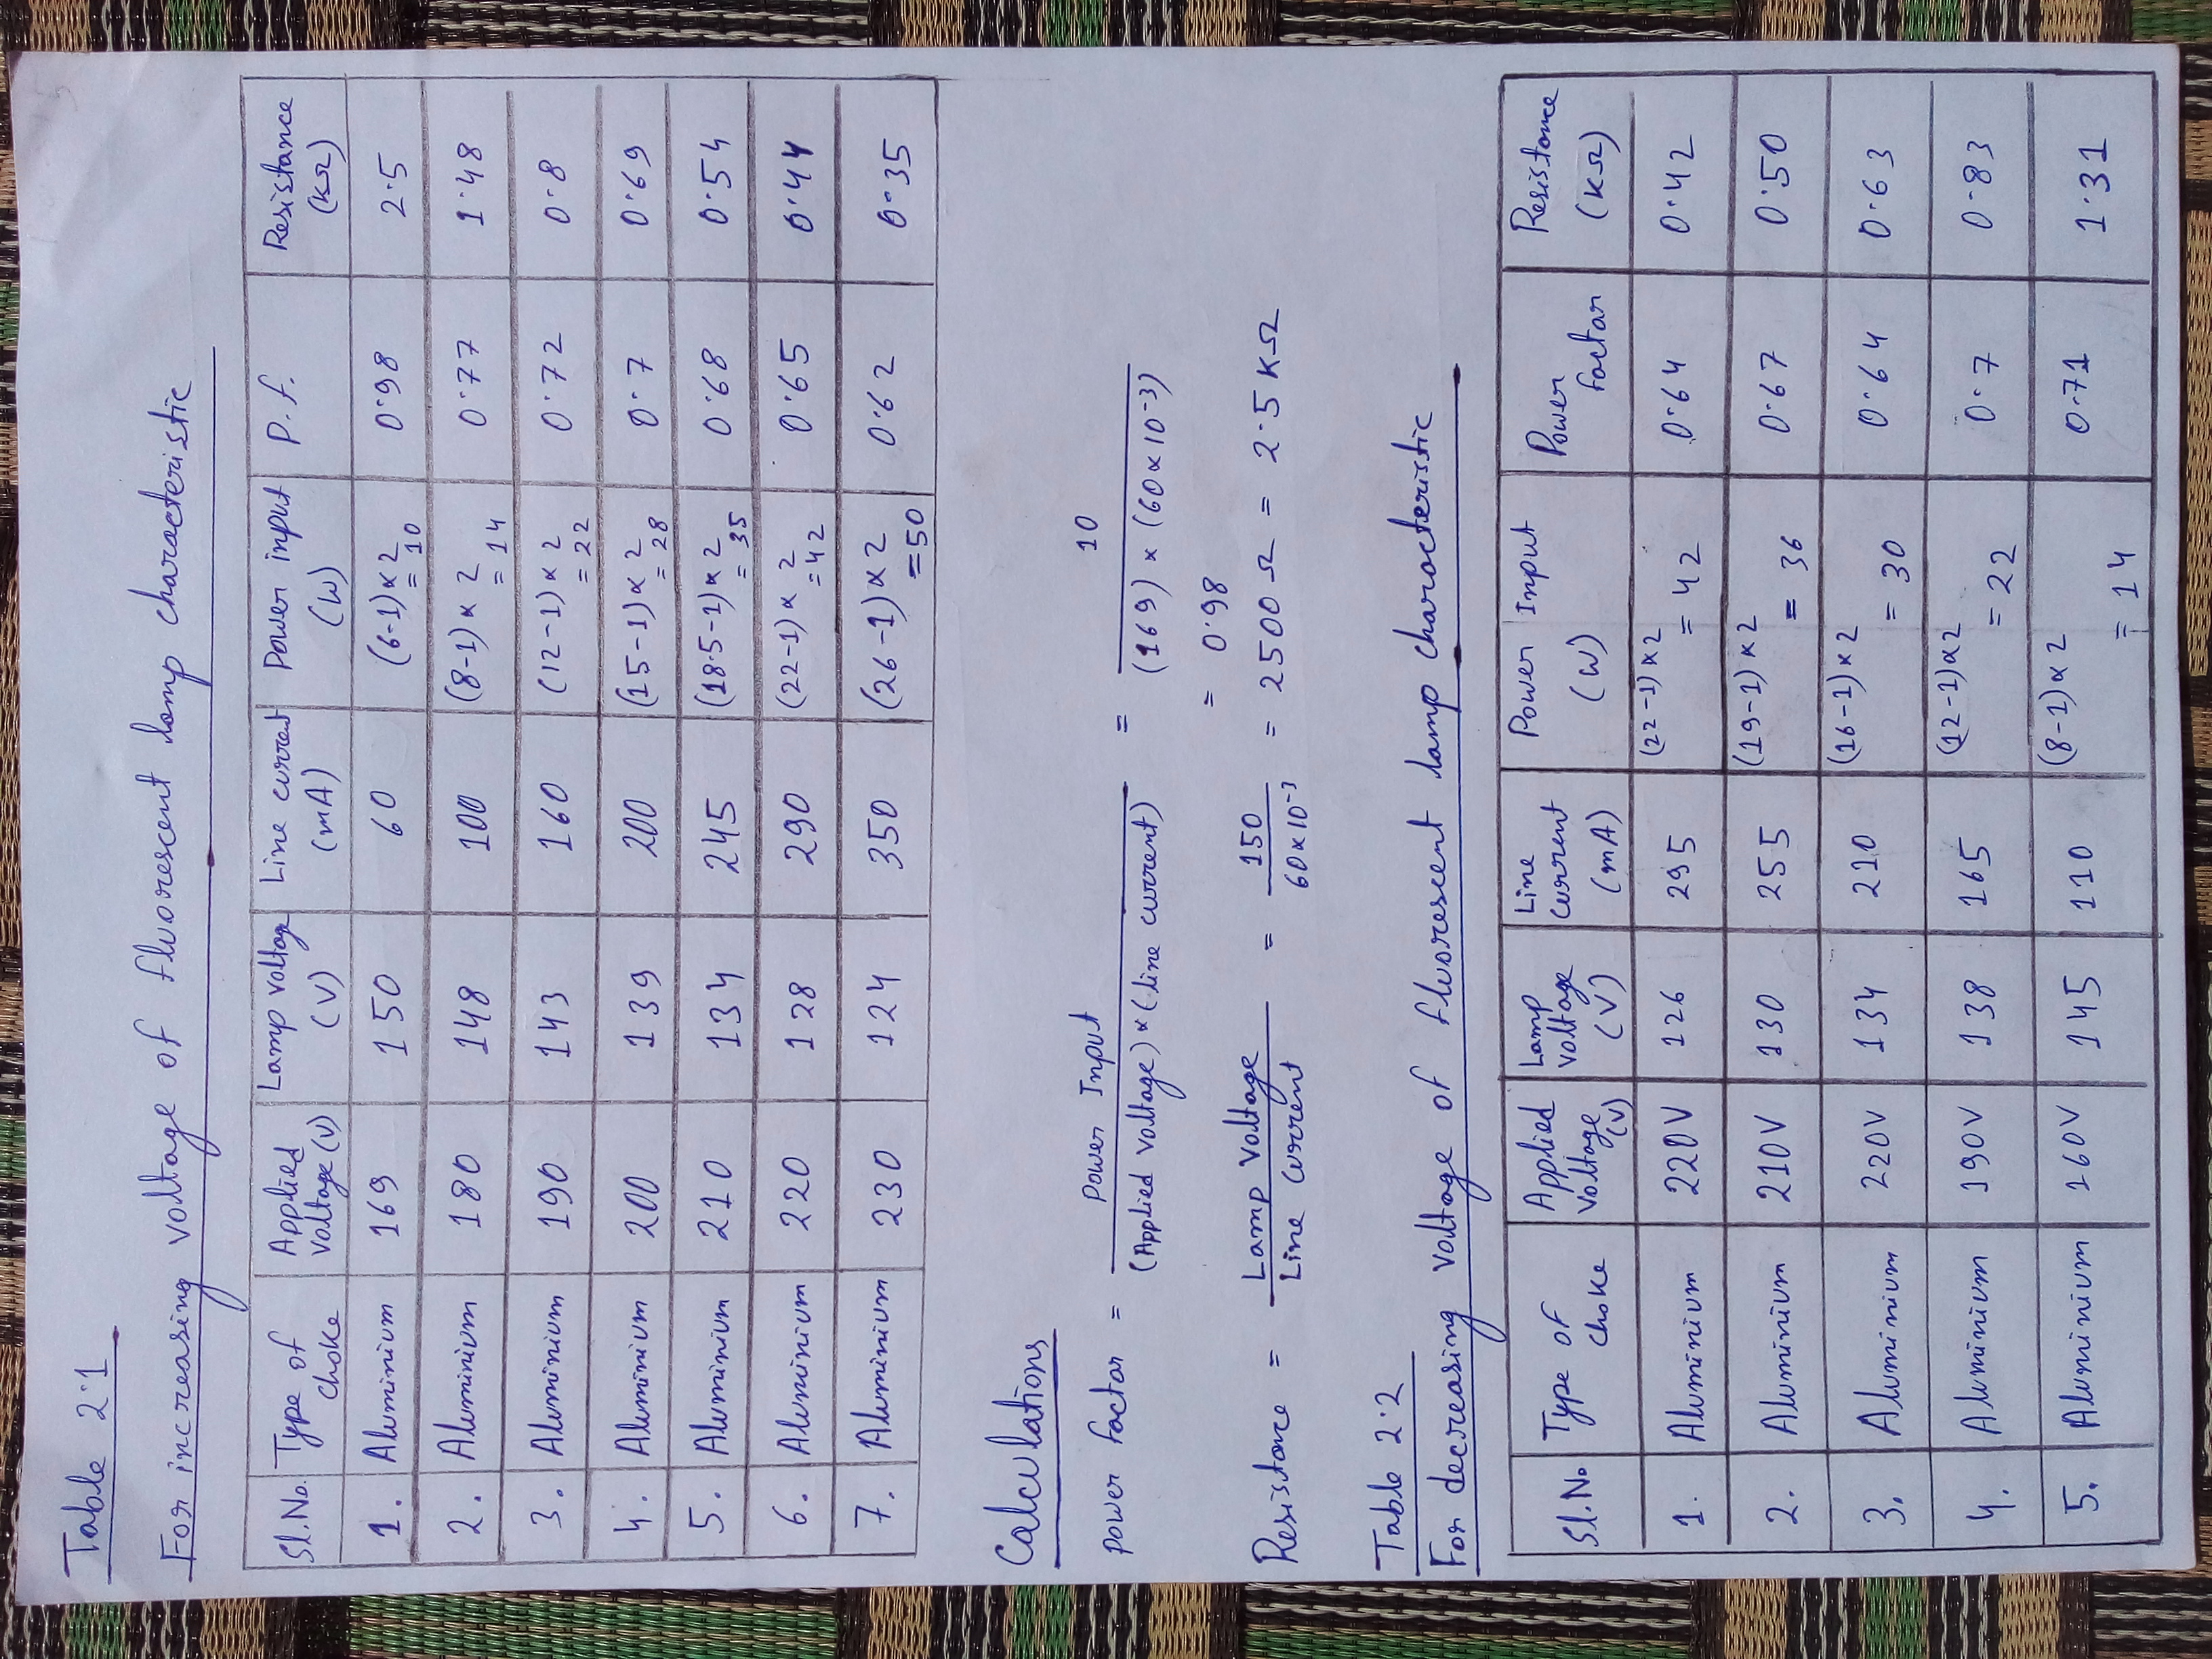 Table 2.1
For increasing voltage of fluorescent lamp characteristic
Sl.No. Type of choke Applied voltage (V) Lamp voltage (V) Line current (mA) Power input (W) P.f. Resistance (KΩ)
1. Aluminium 169 150 60 (6-1)×2 = 10 0.98 2.5
2. Aluminium 180 148 100 (8-1)×2 = 14 0.77 1.48
3. Aluminium 190 143 160 (12-1)×2 = 22 0.72 0.8
4. Aluminium 200 139 200 (15-1)×2 = 28 0.7 0.69
5. Aluminium 210 134 245 (18.5-1)×2 = 35 0.68 0.54
6. Aluminium 220 128 290 (22-1)×2 = 42 0.65 0.44
7. Aluminium 230 124 350 (26-1)×2 = 50 0.62 0.35
Calculations
power factor = Power Input / (Applied voltage)×(line current) = 10 / (169)×(60×10-3)
= 0.98
Resistance = Lamp Voltage / Line Current = 150 / 60×10-3 = 2500 Ω = 2.5 KΩ
Table 2.2
For decreasing voltage of fluorescent lamp characteristic
Sl.No Type of choke Applied voltage (V) Lamp voltage (V) Line current (mA) Power Input (W) Power factor Resistance (KΩ)
1. Aluminium 220V 126 295 (22-1)×2 = 42 0.64 0.42
2. Aluminium 210V 130 255 (19-1)×2 = 36 0.67 0.50
3. Aluminium 220V 134 210 (16-1)×2 = 30 0.64 0.63
4. Aluminium 190V 138 165 (12-1)×2 = 22 0.7 0.83
5. Aluminium 160V 145 110 (8-1)×2 = 14 0.71 1.31